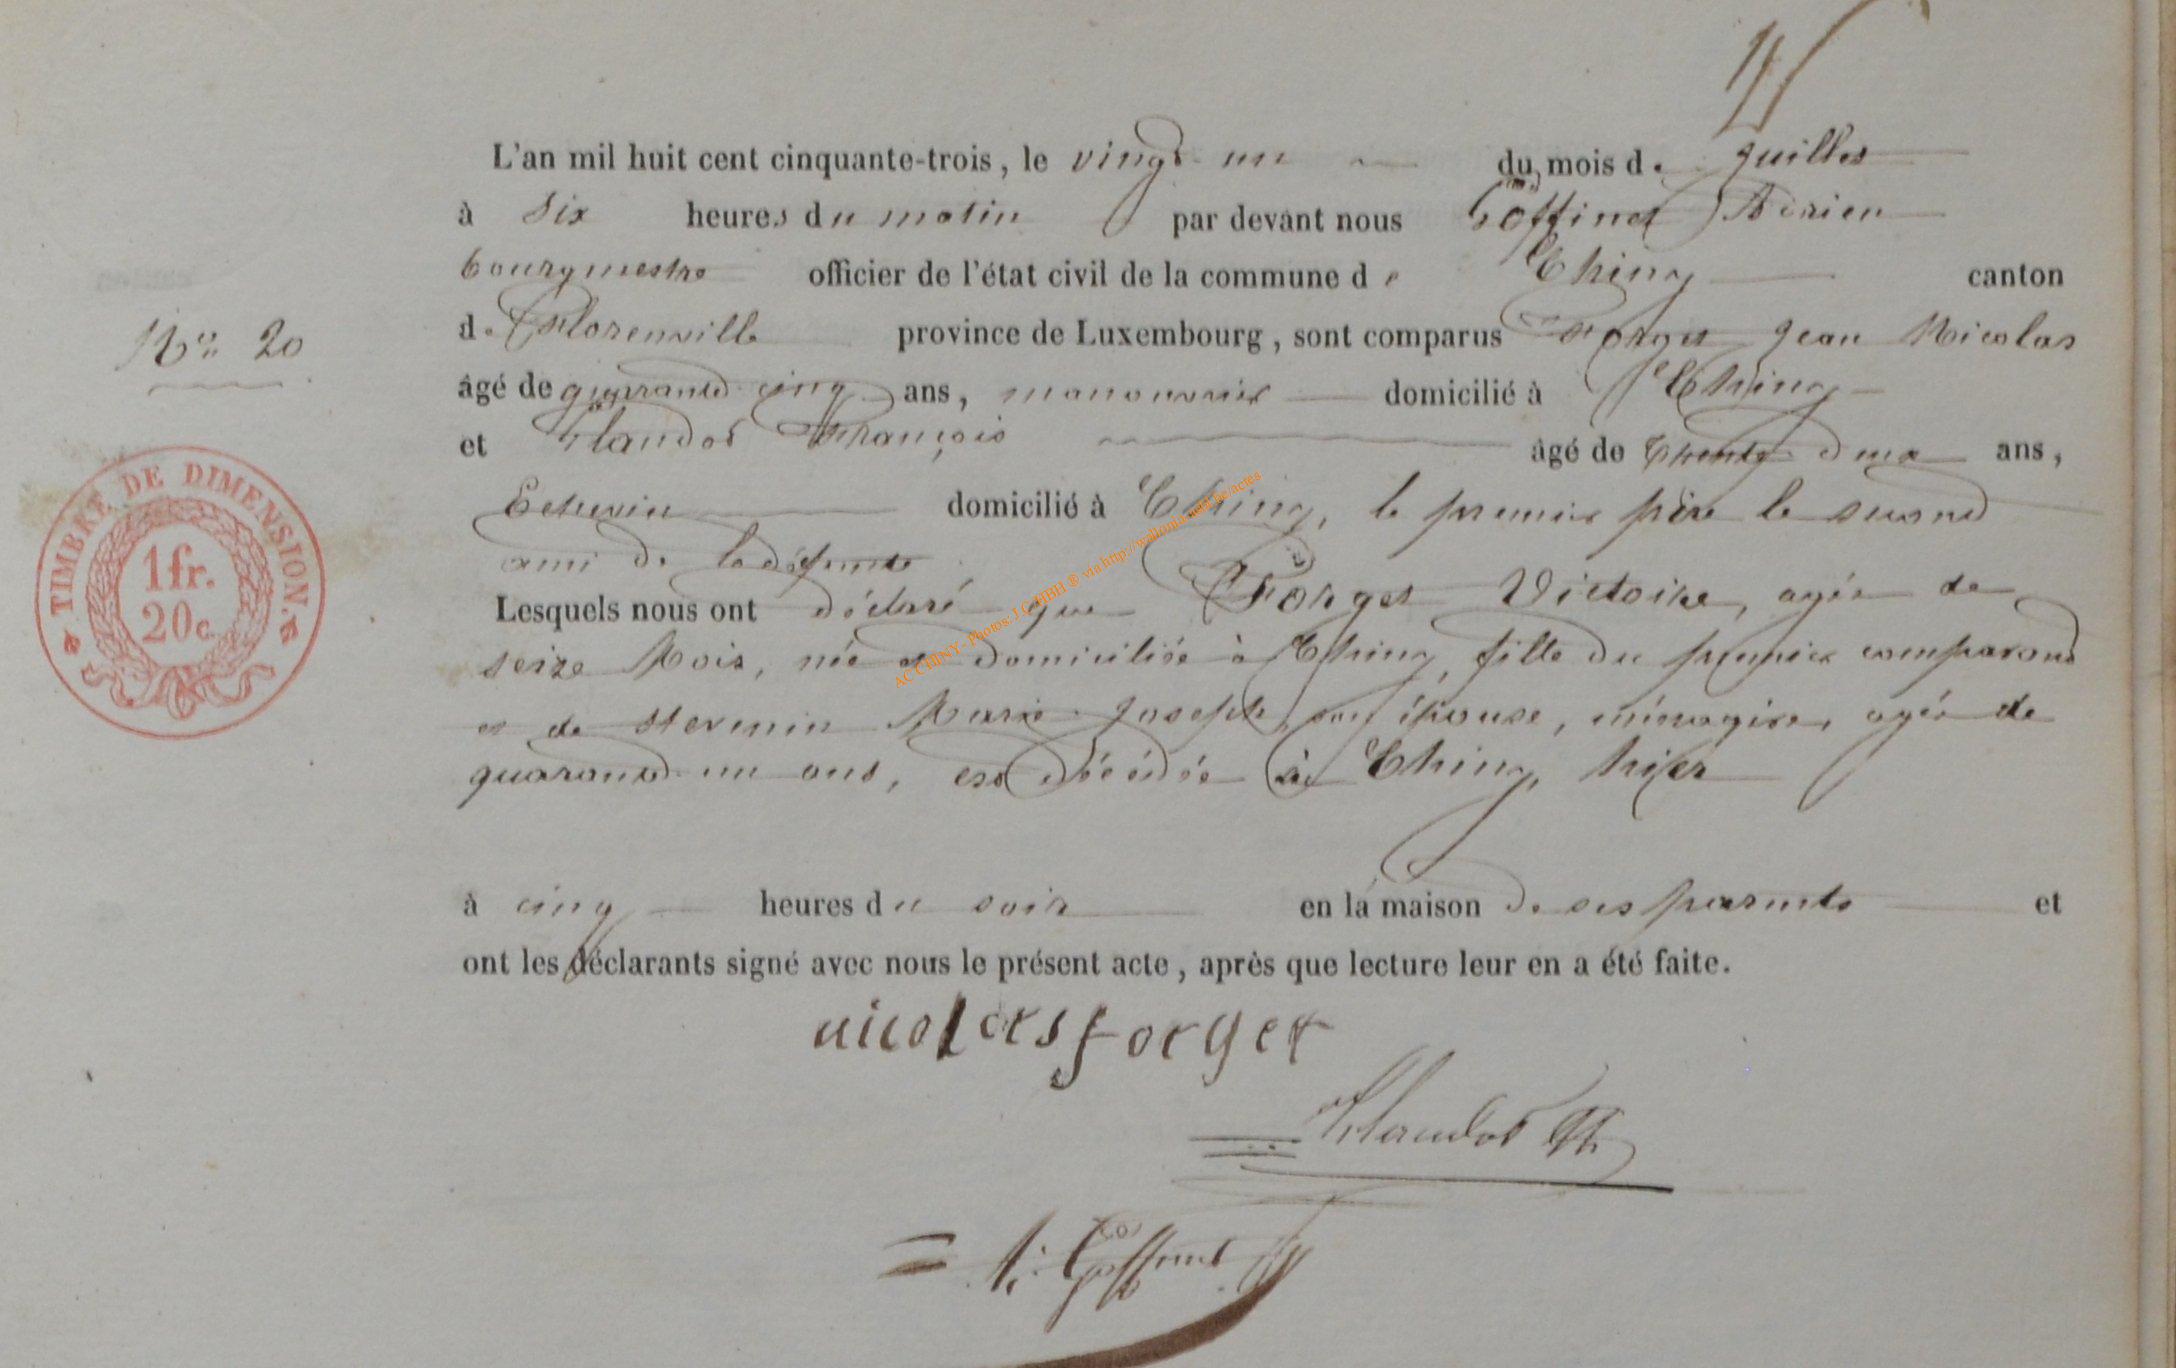 L'an mil huit cent cinquante-trois, le vingt un du mois de juillet
à six heures du matin par devant nous Goffinet Adrien
bourgmestre officier de l'état civil de la commune de Chiny canton
de Florenville province de Luxembourg, sont comparus Forget Jean Nicolas
No 20
âgé de quarante cinq ans, manouvrier domicilié à Chiny
et Claudot François âgé de trente deux ans,
Echevin domicilié à Chiny, le premier père le second
ami de la défunte
Lesquels nous ont déclaré que Forget Victoire, agée de
seize Mois, née et domiciliée à Chiny, fille du premier comparant
et de Stevenin Marie Joseph, son épouse, ménagère, agée de
quarante un ans, est décédée à Chiny, hier
à cinq heures du soir en la maison de ses parents et
ont les déclarants signé avec nous le présent acte, après que lecture leur en a été faite.
nicolas forget
Claudot Fr.
A. Goffinet
TIMBRE DE DIMENSION.
1 fr.
20 c.
AC CHINY - Photos: J.C. HBH ® via http://wallonia.asbl.be/actes